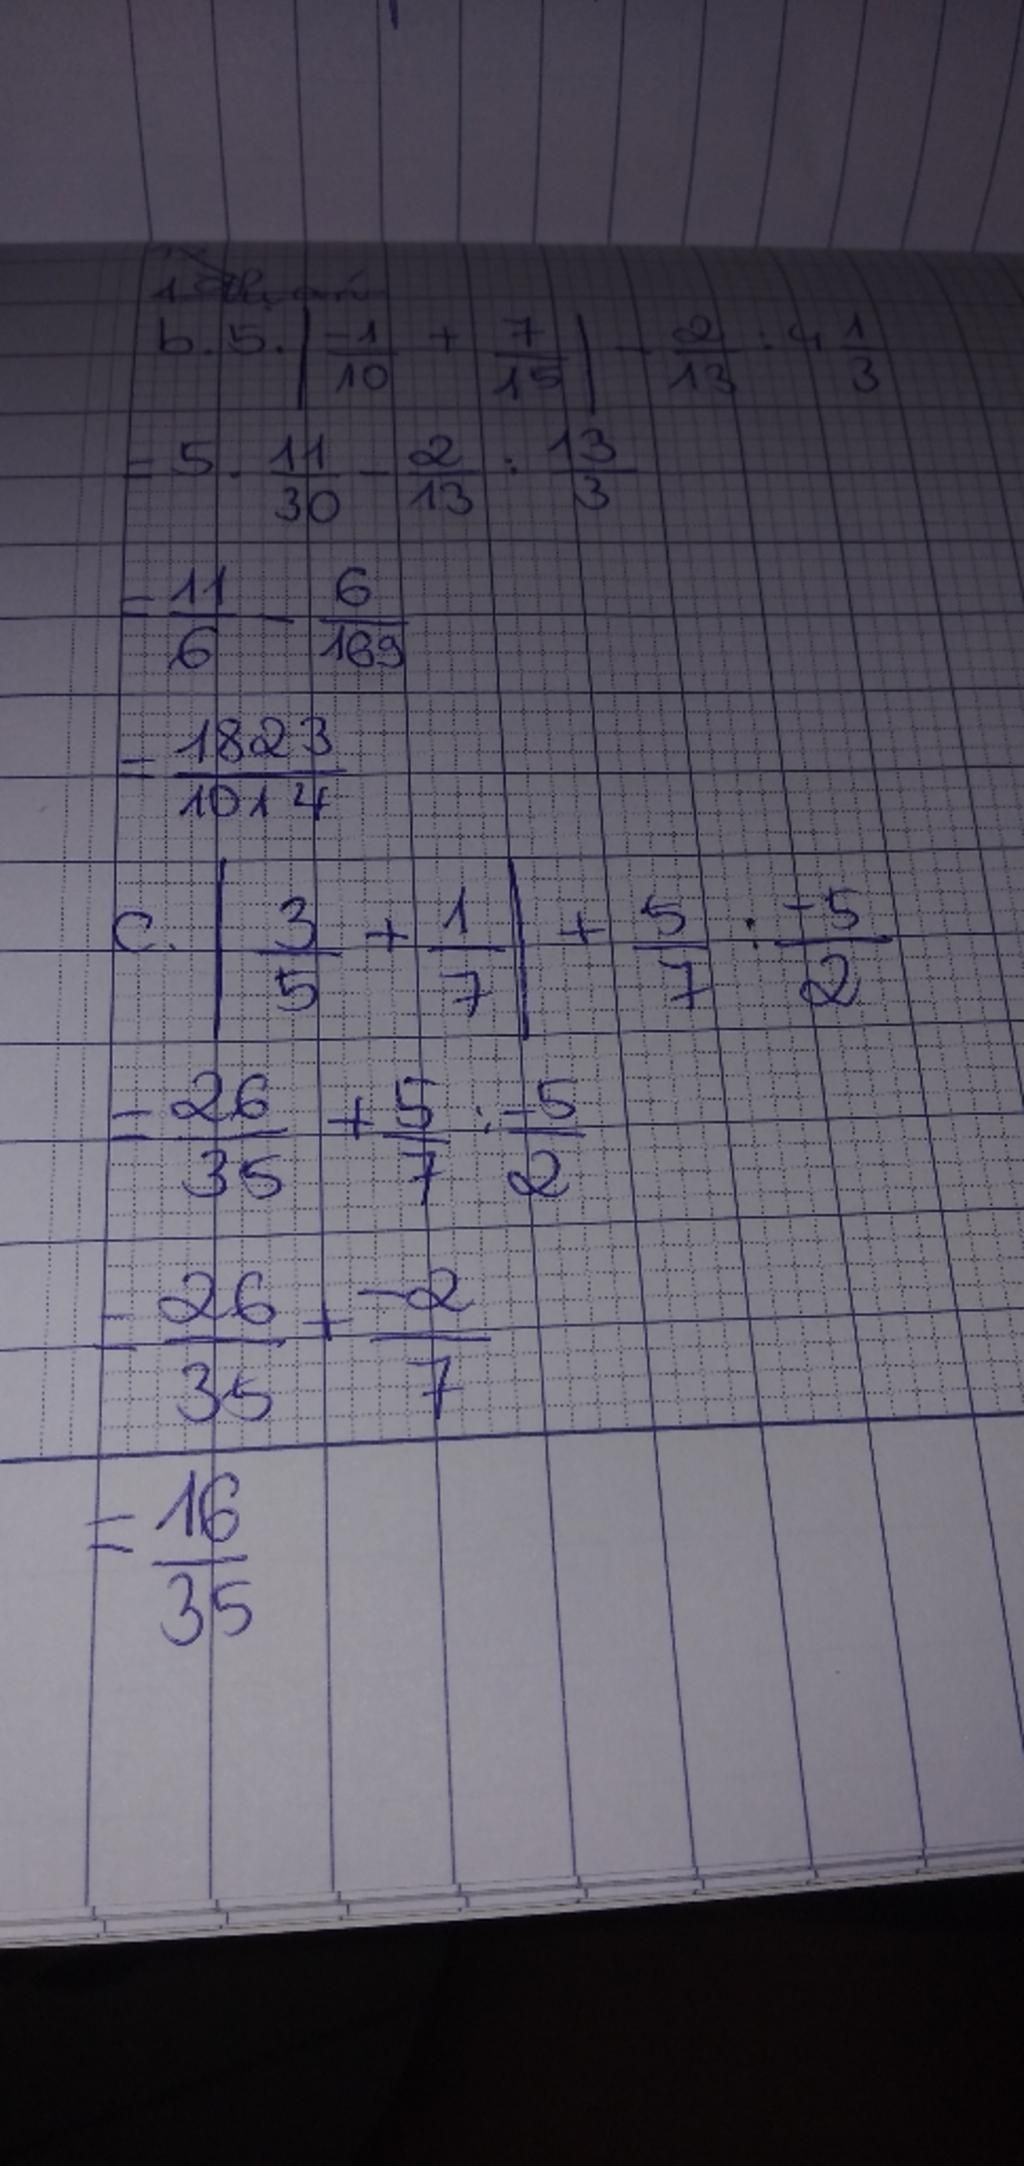 b. 5. | -1/10 + 7/15 | - 2/13 : 4 1/3
= 5 . 11/30 - 2/13 : 13/3
= 11/6 - 6/169
= 1823/1014
c. | 3/5 + 1/7 | + 5/7 : -5/2
= 26/35 + 5/7 : -5/2
= 26/35 + -2/7
= 16/35